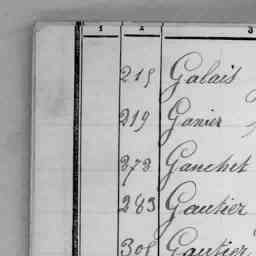 1 2 3
215 Galais
219 Ganier
273 Ganchet
283 Gautier
305 Gautier